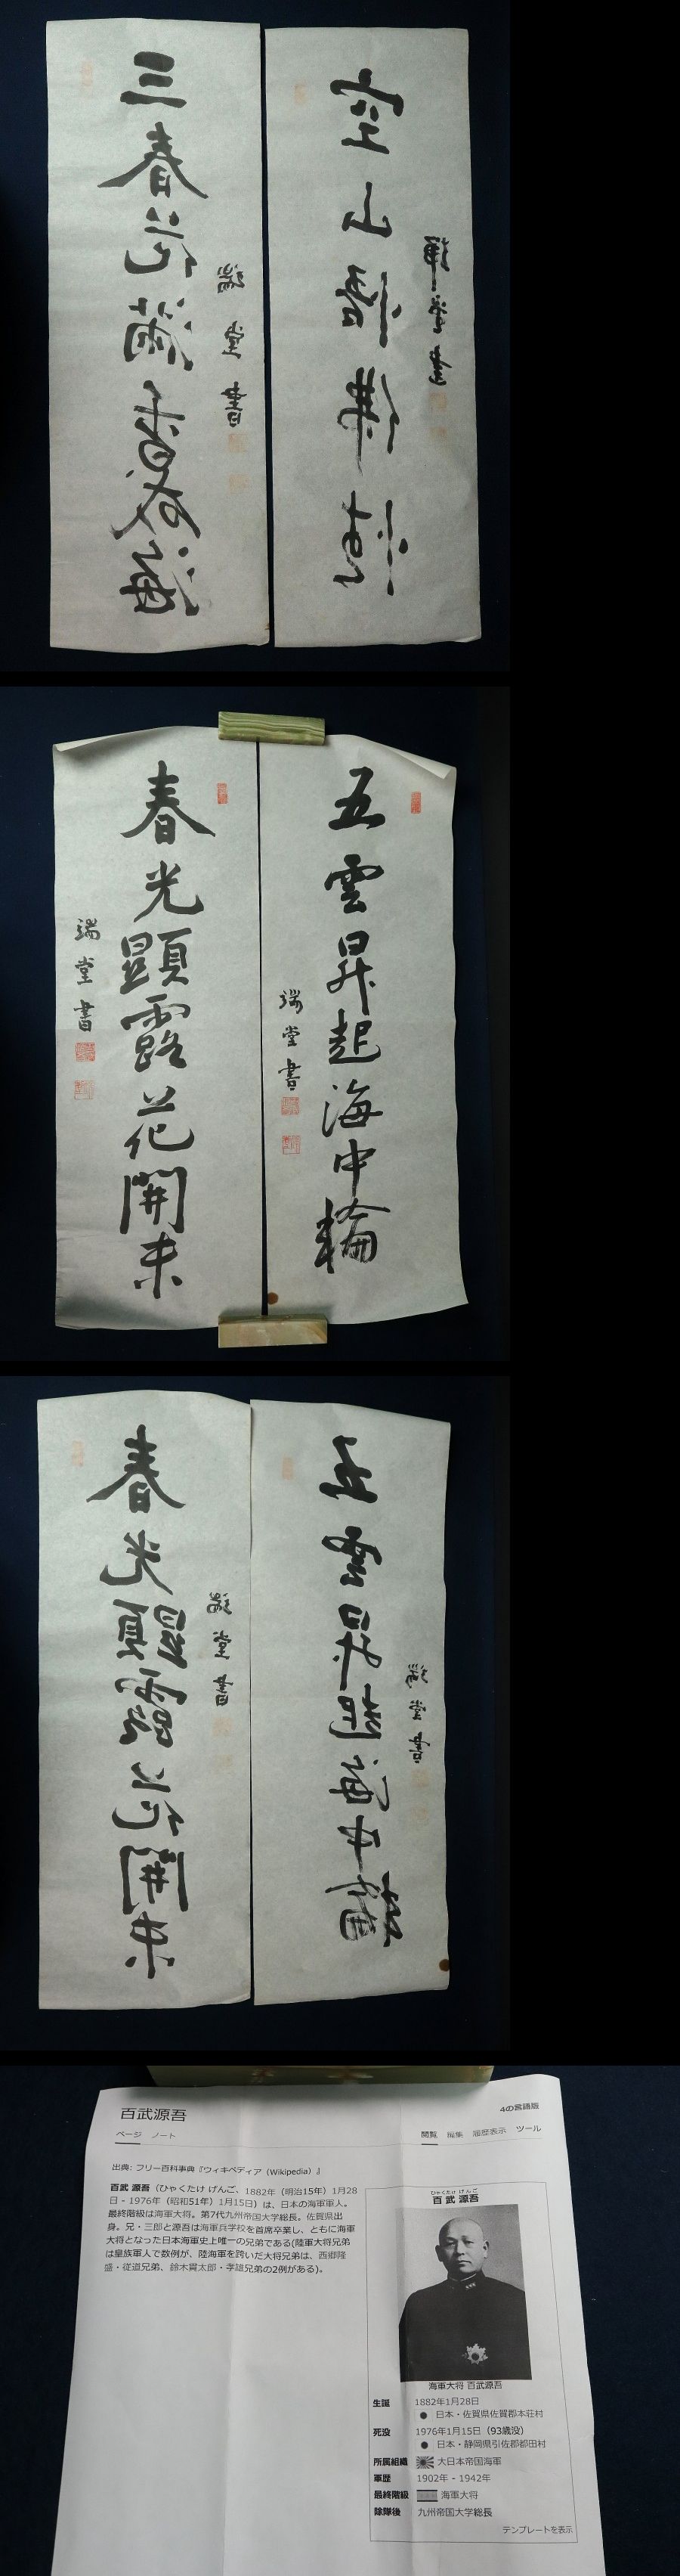 空山悟佛性
瑞堂書
三春花満香成海
瑞堂書
五雲昇起海中輪
瑞堂書
春光顕露花開未
瑞堂書
五雲昇起海中輪
瑞堂書
春光顕露花開未
瑞堂書
百武源吾
4の言語版
ページ ノート
閲覧 編集 履歴表示 ツール
出典: フリー百科事典『ウィキペディア（Wikipedia）』
百武 源吾（ひゃくたけ げんご、1882年（明治15年）1月28
日 - 1976年（昭和51年）1月15日）は、日本の海軍軍人。
最終階級は海軍大将。第7代九州帝国大学総長。佐賀県出
身。兄・三郎と源吾は海軍兵学校を首席卒業し、ともに海軍
大将となった日本海軍史上唯一の兄弟である(陸軍大将兄弟
は皇族軍人で数例が、陸海軍を跨いだ大将兄弟は、西郷隆
盛・従道兄弟、鈴木貫太郎・孝雄兄弟の2例がある)。
ひゃくたけ げんご
百武 源吾
海軍大将 百武源吾
生誕 1882年1月28日
日本・佐賀県佐賀郡本荘村
死没 1976年1月15日（93歳没）
日本・静岡県引佐郡都田村
所属組織 大日本帝国海軍
軍歴 1902年 - 1942年
最終階級 海軍大将
除隊後 九州帝国大学総長
テンプレートを表示